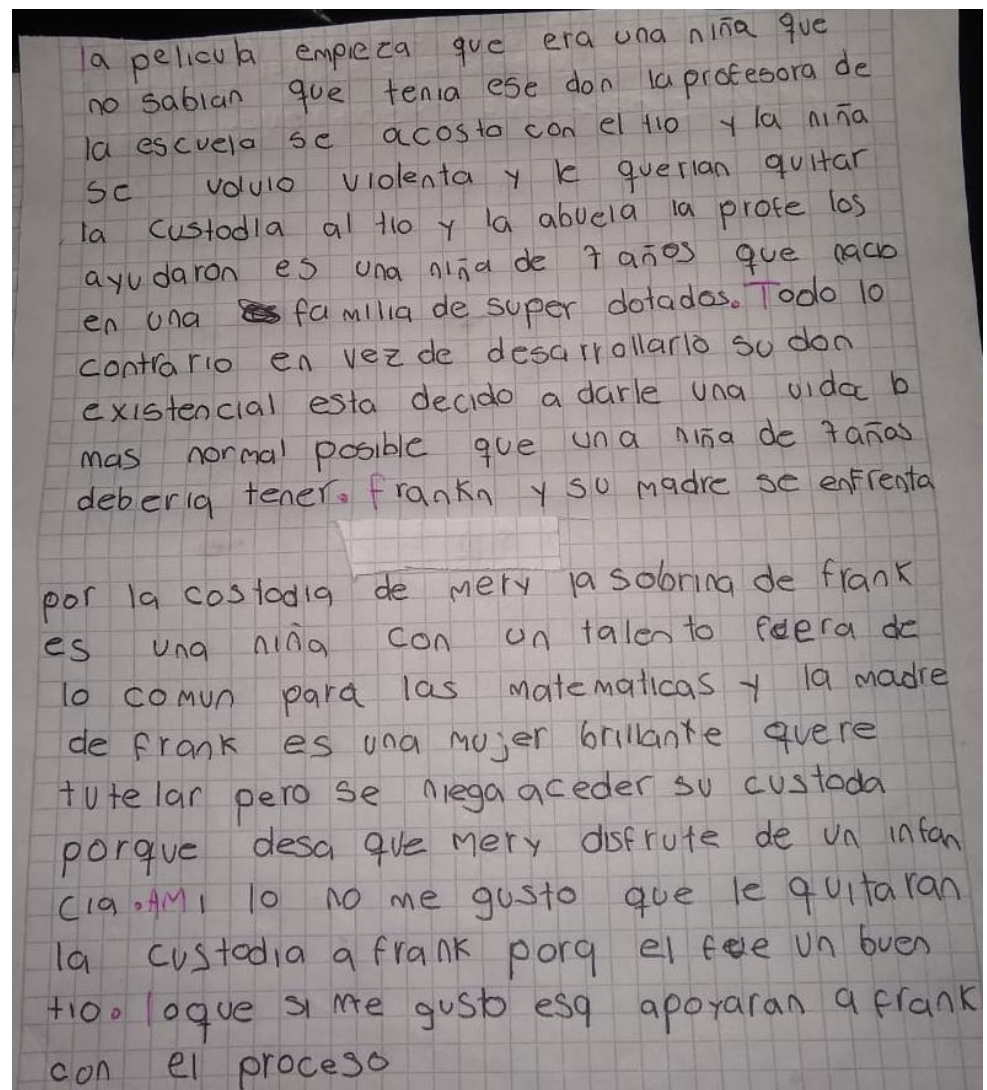 la pelicula empieza que era una niña que
no sabian que tenia ese don la profesora de
la escuela se acosto con el tio y la niña
se volvio violenta y le querian quitar
la custodia al tio y la abuela la profe los
ayudaron es una niña de 7 años que nacio
en una familia de super dotados. Todo lo
contrario en vez de desarrollarlo su don
existencial esta decido a darle una vida lo
mas normal posible que una niña de 7 años
deberia tener. frankn y su madre se enfrenta
por la costodia de mery la sobrina de frank
es una niña con un talento feera de
lo comun para las matematicas y la madre
de frank es una mujer brillante quere
tutelar pero se niega aceder su custoda
porque desa que mery disfrute de un infan
cia. AMi lo no me gusto que le quitaran
la custodia a frank porq el fue un buen
tio. loque si me gusto esq apoyaran a frank
con el proceso